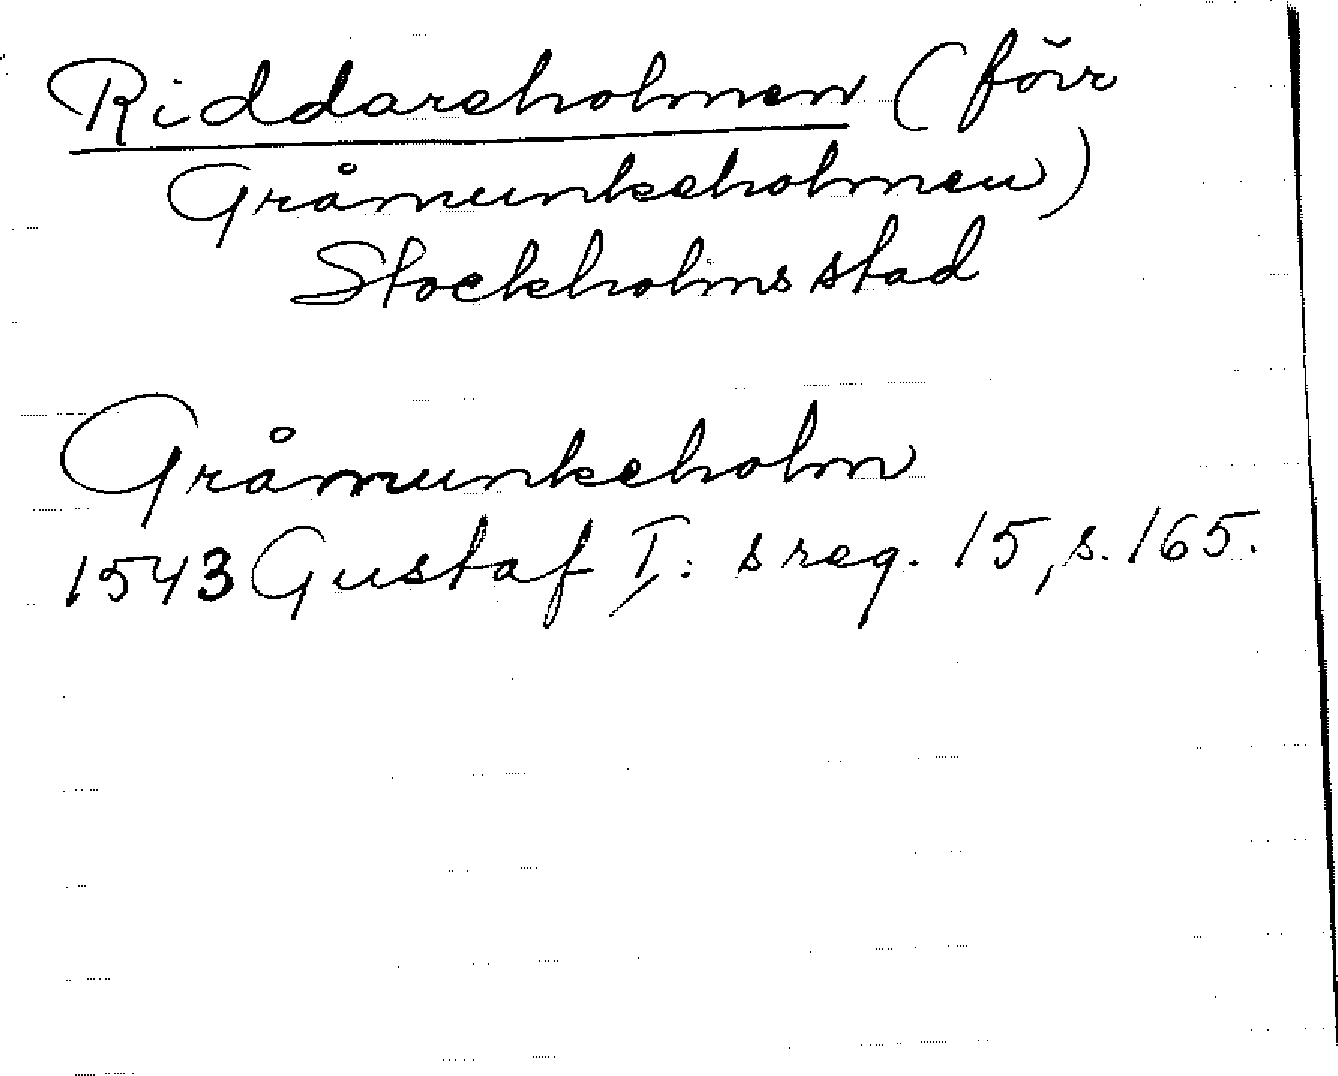 Riddareholmen (förr
Gråmunkeholmen)
Stockholms stad
Gråmunkeholm
1543 Gustaf I:s reg. 15, s. 165.